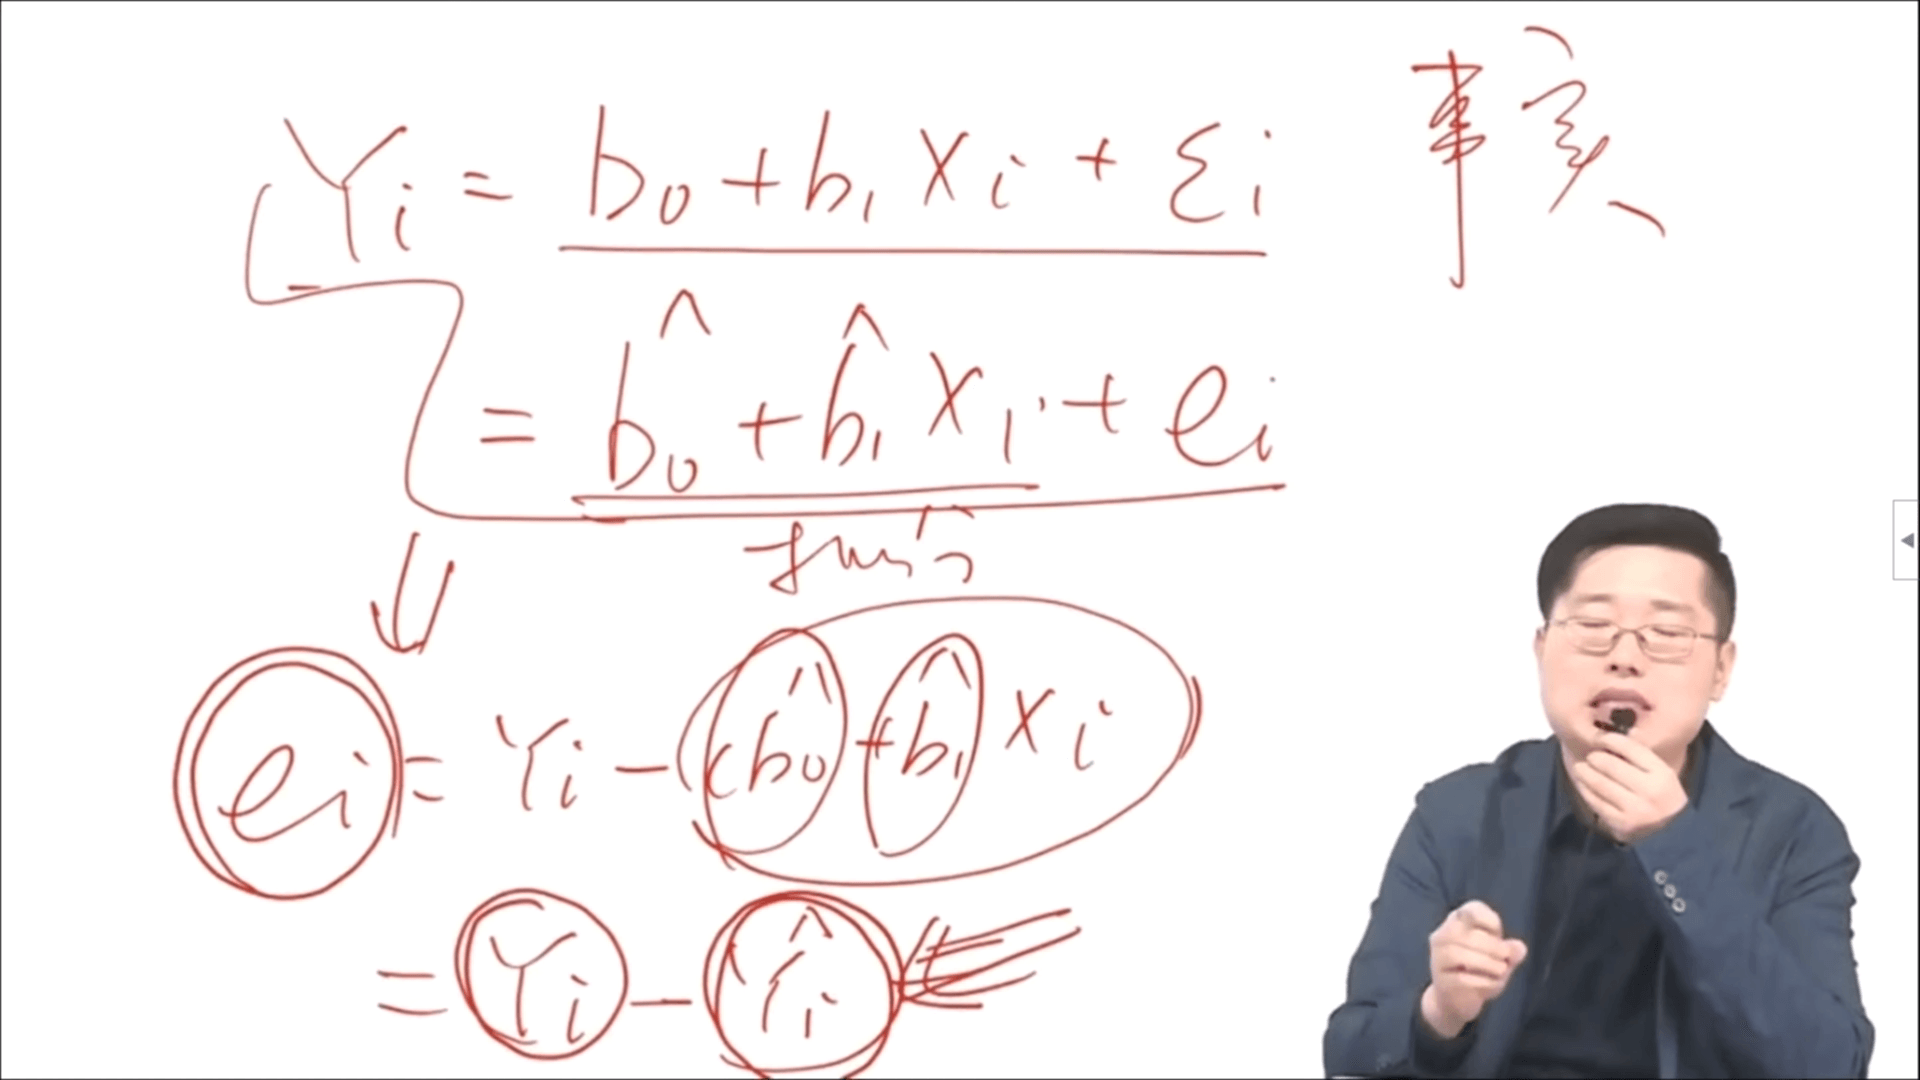 Yi = b0 + b1 Xi + εi 事实
= b̂0 + b̂1 Xi + ei
ei = Yi − (b̂0 + b̂1 Xi
= Yi − Ŷi